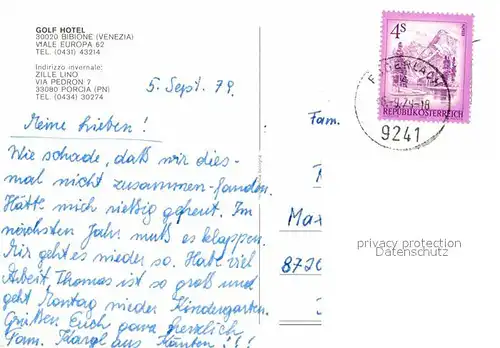 GOLF HOTEL
30020 BIBIONE (VENEZIA)
VIALE EUROPA 62
TEL. (0431) 43214
Indirizzo invernale:
ZILLE LINO
VIA PEDRON 7
33080 PORCIA (PN)
TEL. (0434) 30274
5. Sept. 79.
Meine Lieben!
Wie schade, daß wir dies-
mal nicht zusammen-fanden.
Hätte mich rießig gefreut. Im
nächsten Jahr muß es klappen.
Mir geht es wieder so. Habe viel
Arbeit, Thomas ist so groß und
geht Montag wieder Kindergarten.
Grüßen Euch ganz herzlich
Fam. Kargl aus Kärnten!!!
4S
REPUBLIK ÖSTERREICH
9.79-18
9241
Fam.
Max
8720
privacy protection
Datenschutz